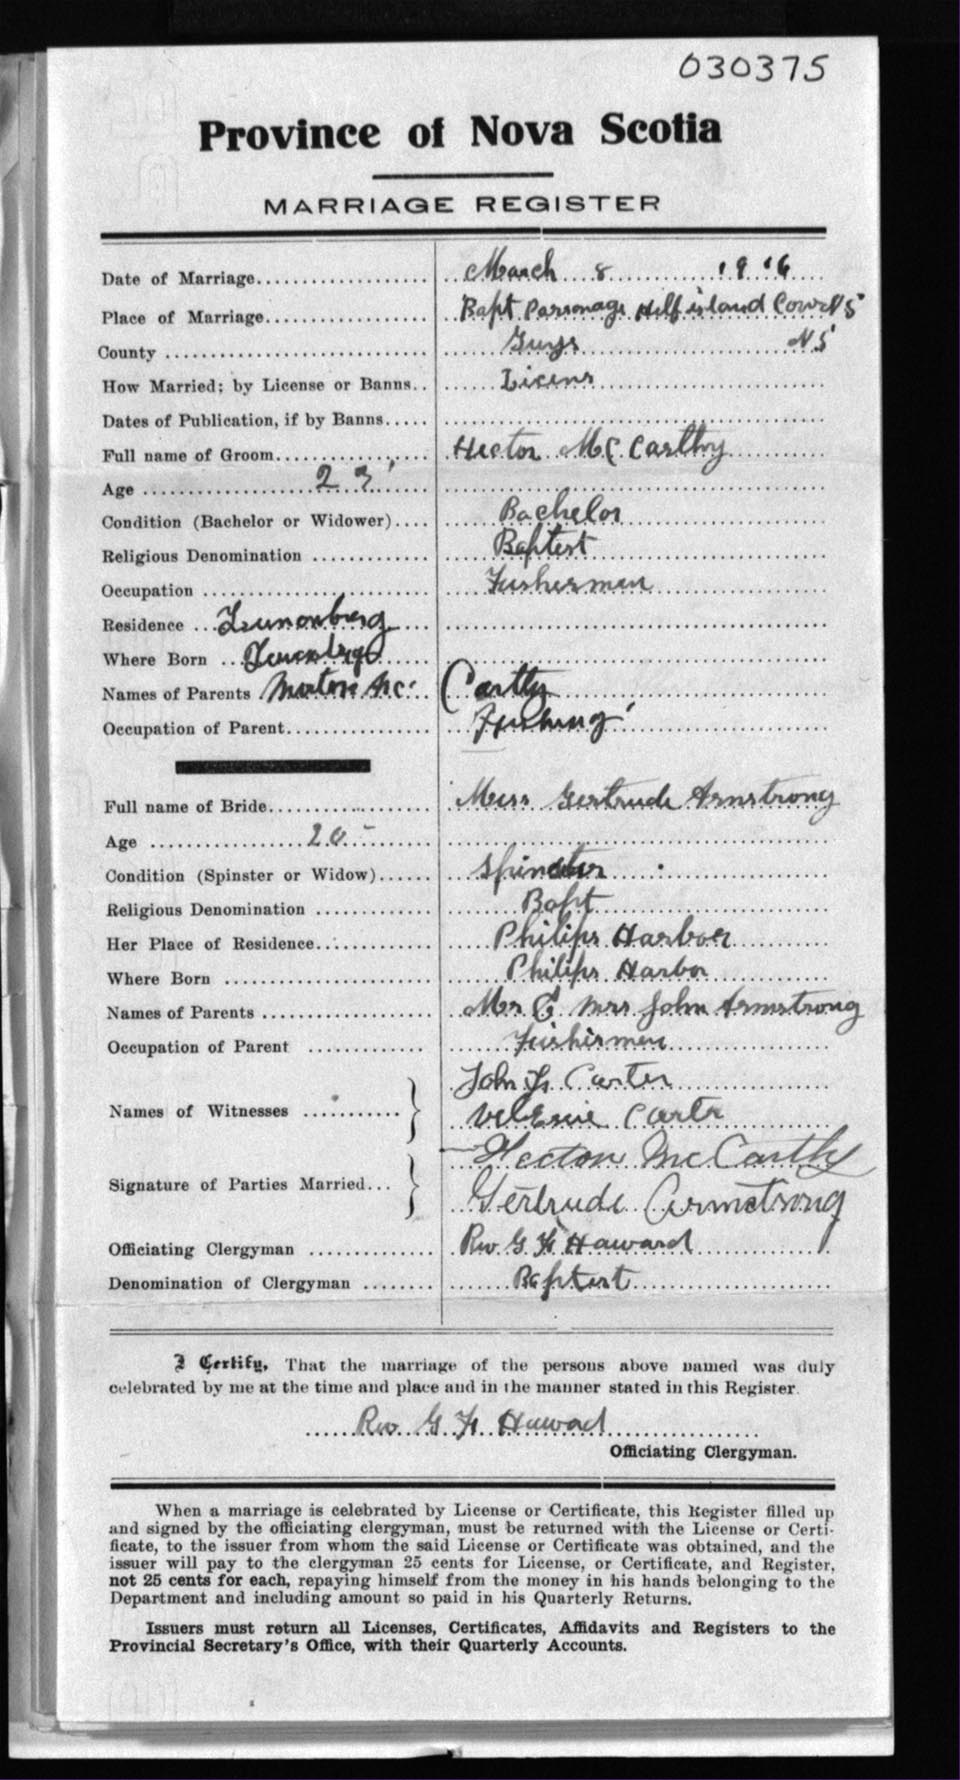 030375
Province of Nova Scotia
MARRIAGE REGISTER
Date of Marriage.................... March 8 1916
Place of Marriage.................. Bapt Parsonage Half island Cove NS
County ................................ Guys NS
How Married; by License or Banns.. Licens
Dates of Publication, if by Banns.....
Full name of Groom.................. Hector Mc Carthy
Age .................... 23
Condition (Bachelor or Widower).... Bachelor
Religious Denomination ............. Baptist
Occupation ........................... Fishermen
Residence ... Lunonberg
Where Born ...
Names of Parents Morton Mc Carthy
Occupation of Parent................. Fishing
Full name of Bride.................... Miss Gertrude Armstrong
Age .................. 20
Condition (Spinster or Widow)...... Spinster
Religious Denomination ............. Bapt
Her Place of Residence.............. Philips Harbor
Where Born ......................... Philips Harbor
Names of Parents .................... Mr & Mrs John Armstrong
Occupation of Parent ............. Fishirmen
John F. Carter
Names of Witnesses ............ }
Carter
Hector McCarthy
Signature of Parties Married... }
Gertrude Armstrong
Officiating Clergyman .............. Rev G F Haward
Denomination of Clergyman ........ Baptist
I Certify, That the marriage of the persons above named was duly
celebrated by me at the time and place and in the manner stated in this Register.
Rev G F Haward
Officiating Clergyman.
When a marriage is celebrated by License or Certificate, this Register filled up
and signed by the officiating clergyman, must be returned with the License or Certi-
ficate, to the issuer from whom the said License or Certificate was obtained, and the
issuer will pay to the clergyman 25 cents for License, or Certificate, and Register,
not 25 cents for each, repaying himself from the money in his hands belonging to the
Department and including amount so paid in his Quarterly Returns.
Issuers must return all Licenses, Certificates, Affidavits and Registers to the
Provincial Secretary's Office, with their Quarterly Accounts.